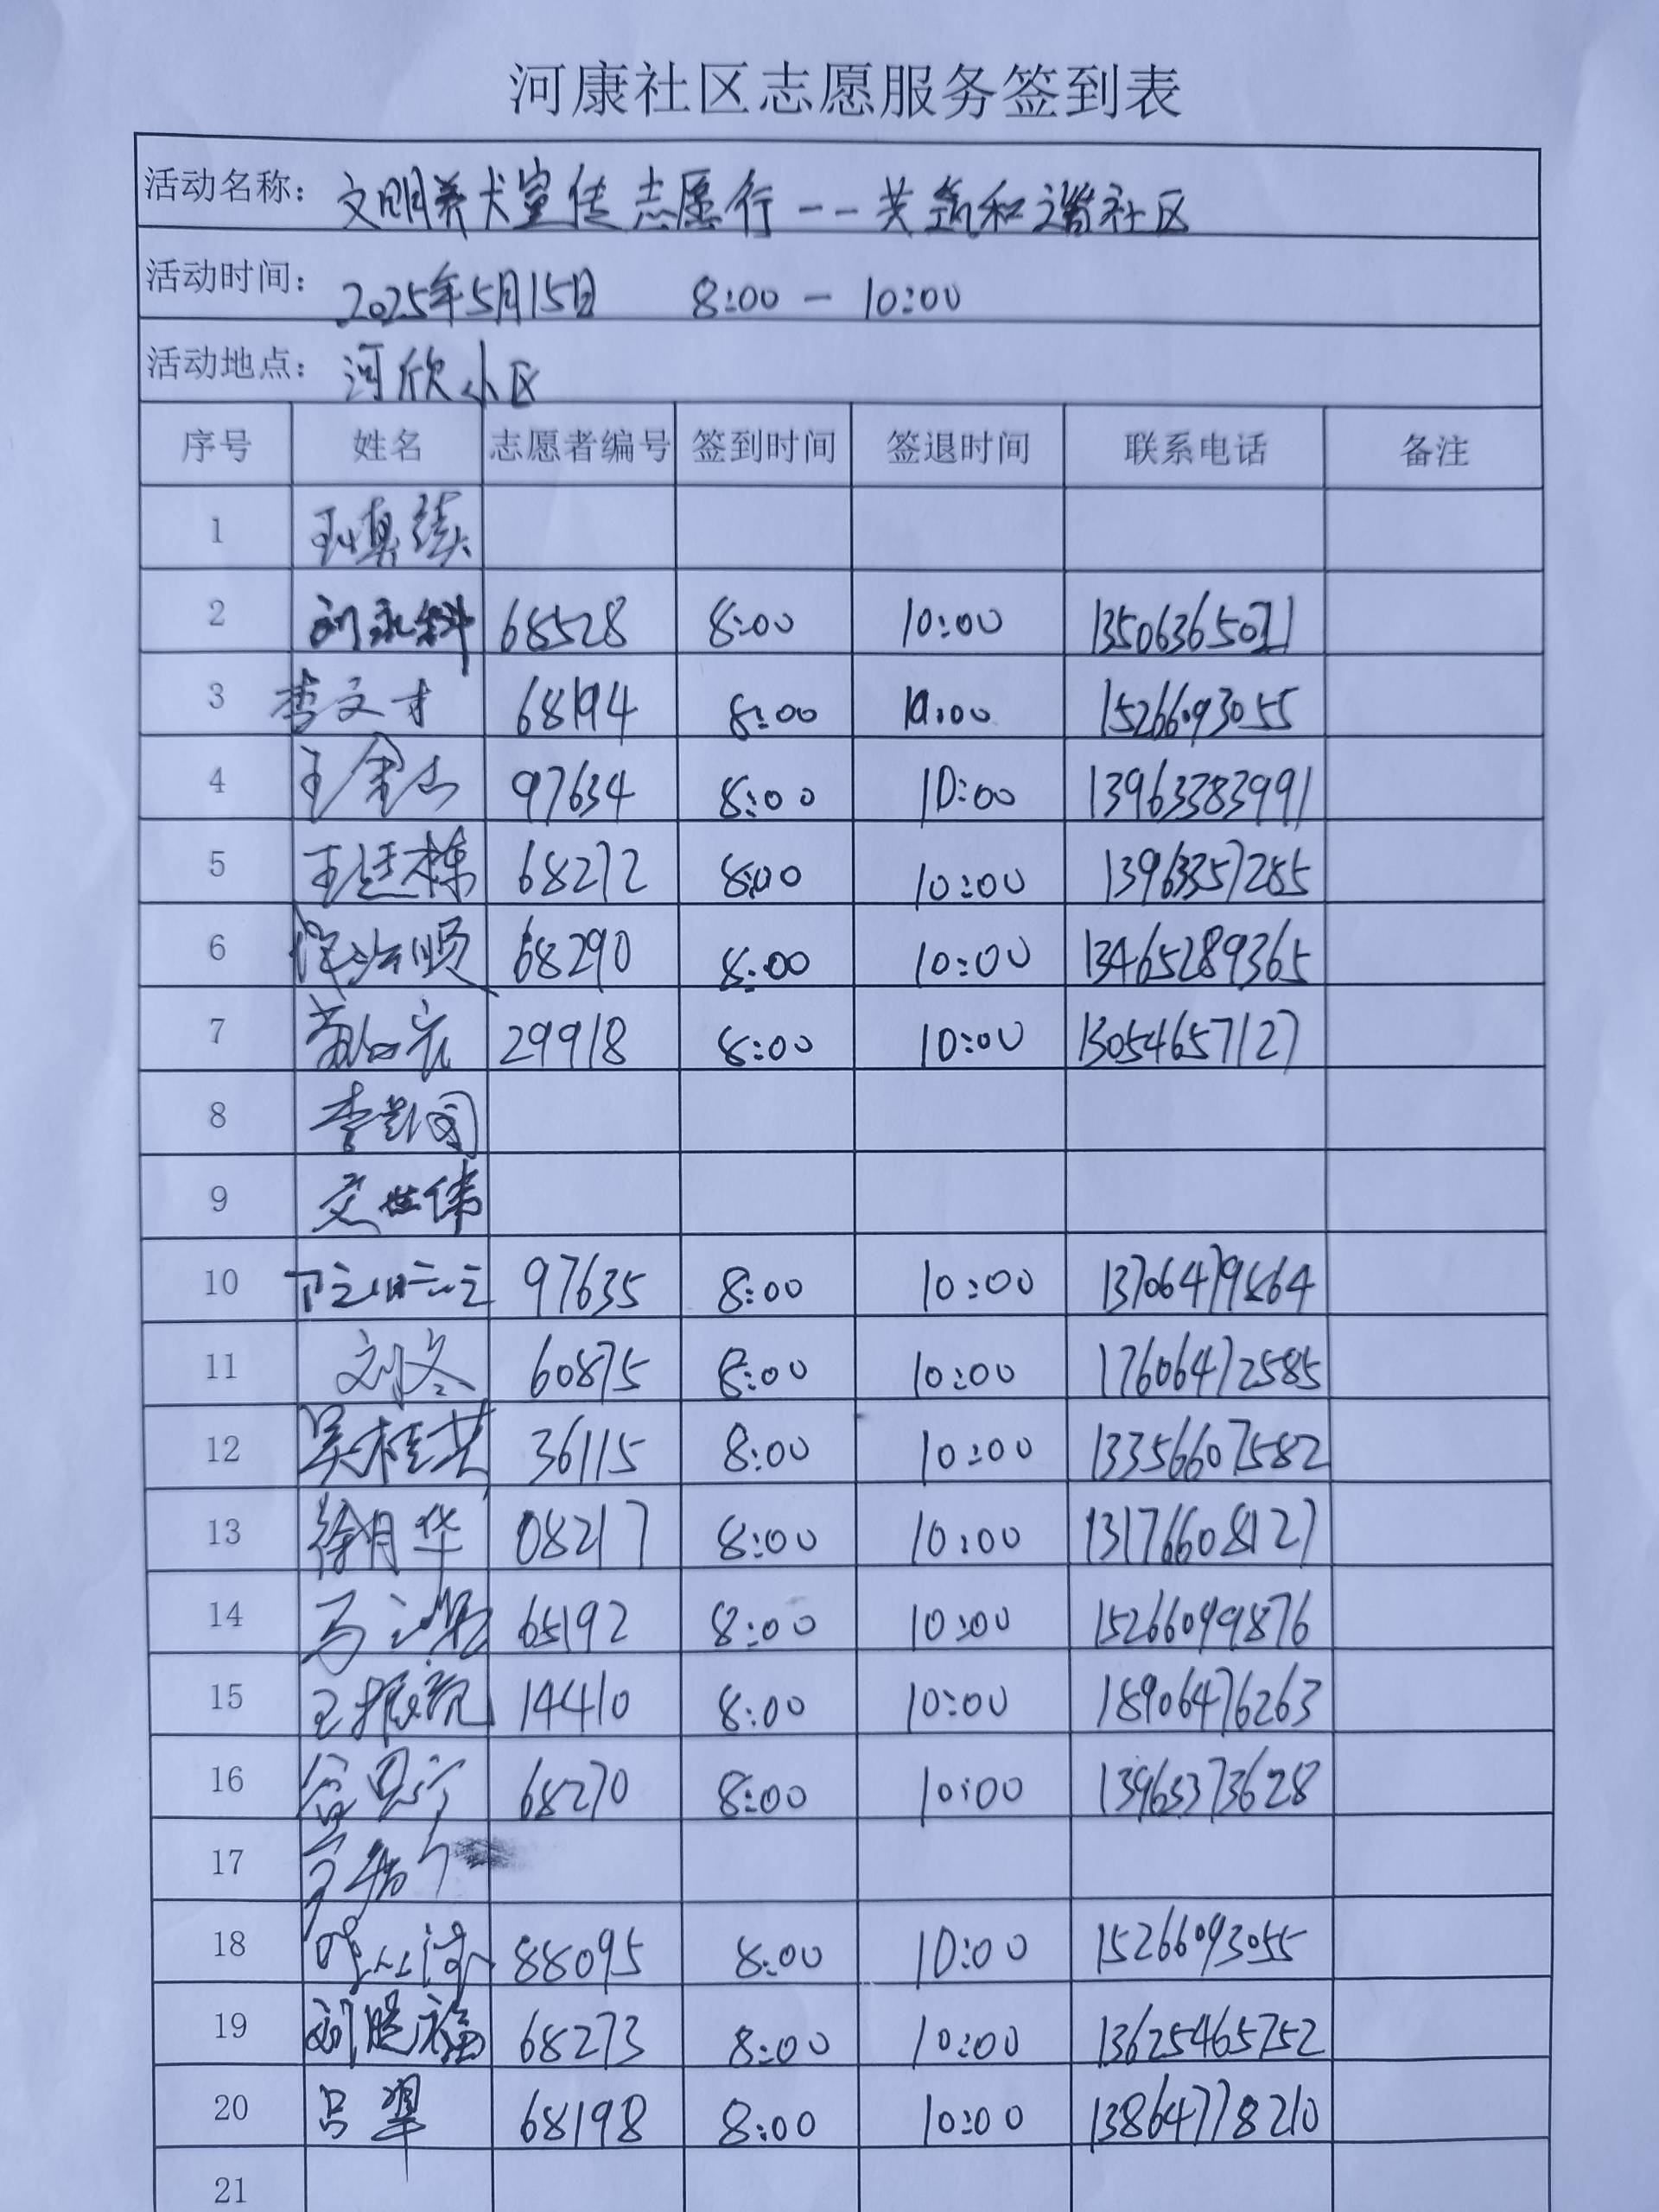 河康社区志愿服务签到表
活动名称: 文明养犬宣传志愿行--共筑和谐社区
活动时间: 2025年5月15日 8:00-10:00
活动地点: 河欣小区
序号 姓名 志愿者编号 签到时间 签退时间 联系电话 备注
1
2 刘永科 68528 8:00 10:00
3 李文才 68194 8:00 10:00 15266093055
4 王金山 97634 8:00 10:00 13963383991
5 王廷栋 68272 8:00 10:00 13963357285
6 68290 8:00 10:00 13465289365
7 29918 8:00 10:00 13054657127
8
9
10 97635 8:00 10:00 13706479864
11 刘冬 60875 8:00 10:00 17606472585
12 吴桂芸 36115 8:00 10:00 13356607582
13 徐月华 08217 8:00 10:00 13176608127
14 65192 8:00 10:00 15266099876
15 14410 8:00 10:00 18906476263
16 68270 8:00 10:00 13963373628
17
18 88095 8:00 10:00 15266093055
19 68273 8:00 10:00 13625465752
20 吕翠 68198 8:00 10:00 13864778210
21